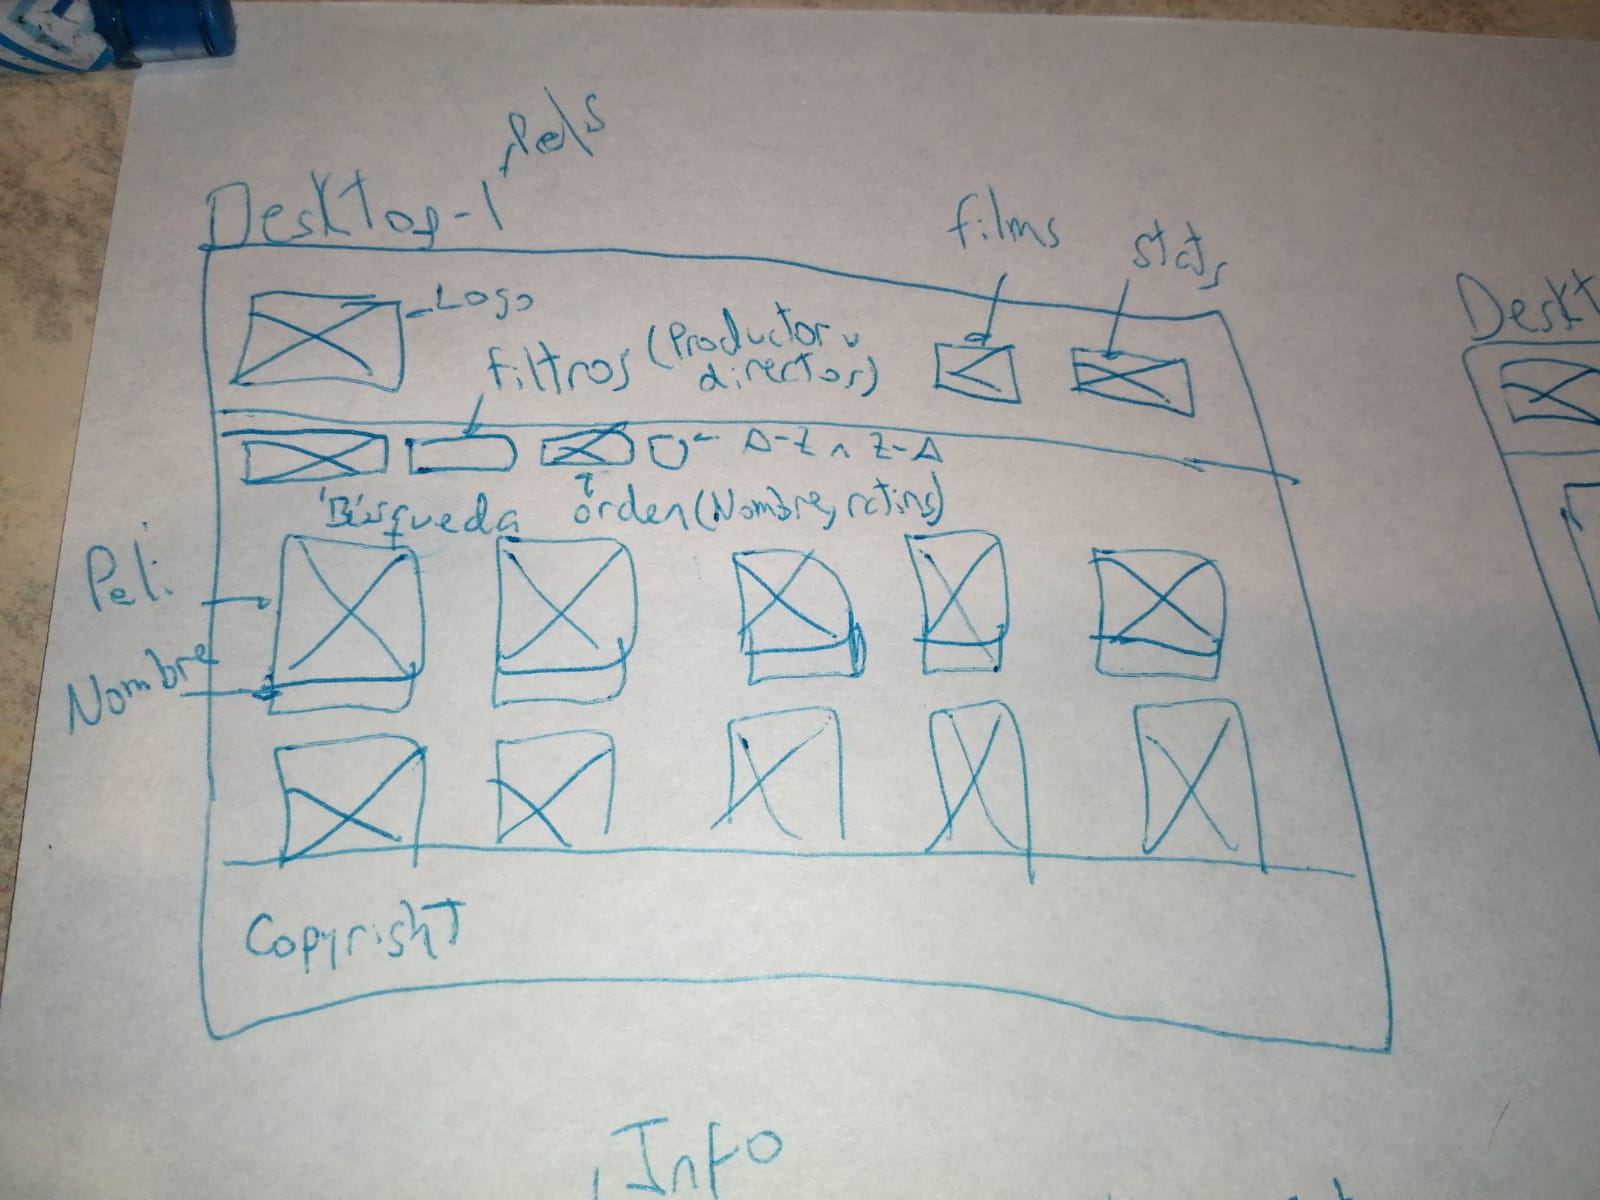 Pels
Desktop-1
films
stats
Logo
filtros (Productor v
director)
A-Z ^ Z-A
Búsqueda
orden (Nombre, rating)
Peli
Nombre
Copyright
Info
Deskt